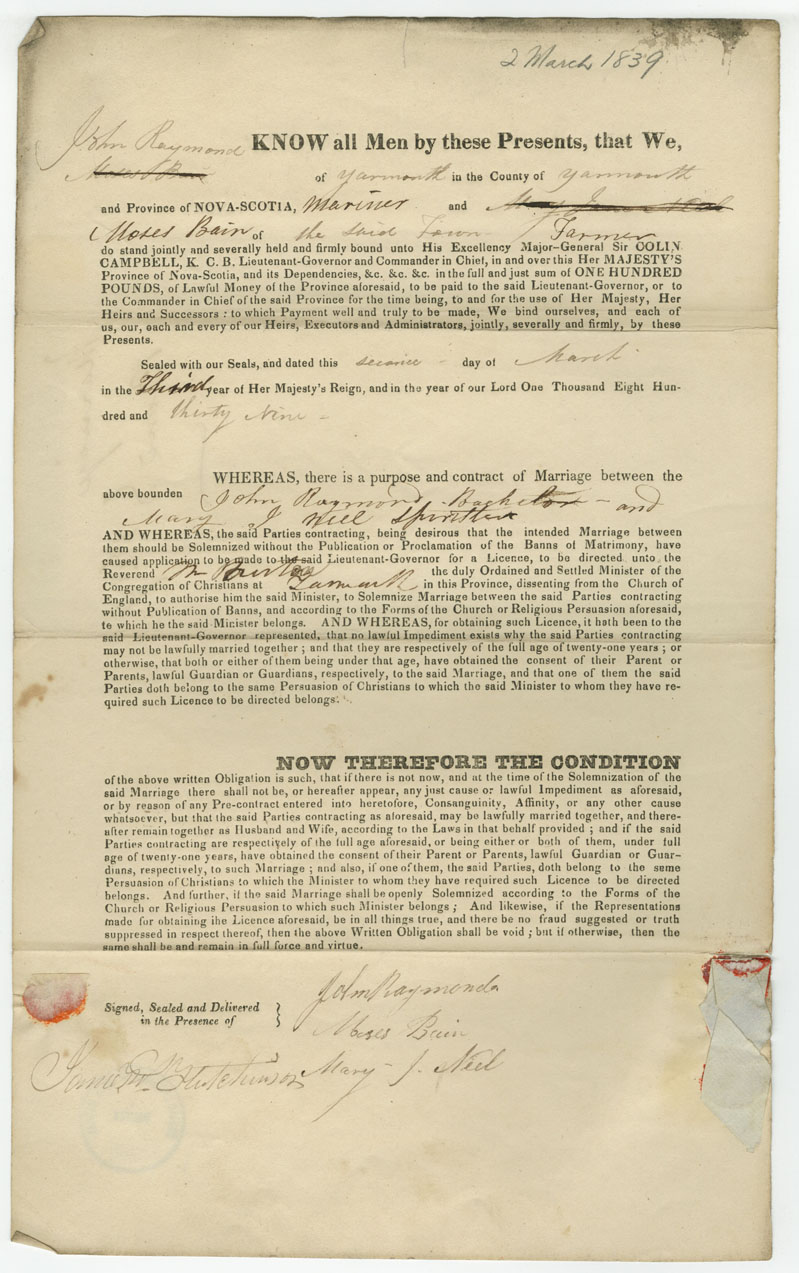 2 March 1839
John Raymond KNOW all Men by these Presents, that We,
of Yarmouth in the County of Yarmouth
and Province of NOVA-SCOTIA, Mariner and
Moses Bain of the said Town Farmer
do stand jointly and severally held and firmly bound unto His Excellency Major-General Sir COLIN
CAMPBELL, K. C. B. Lieutenant-Governor and Commander in Chief, in and over this Her MAJESTY'S
Province of Nova-Scotia, and its Dependencies, &c. &c. &c. in the full and just sum of ONE HUNDRED
POUNDS, of Lawful Money of the Province aforesaid, to be paid to the said Lieutenant-Governor, or to
the Commander in Chief of the said Province for the time being, to and for the use of Her Majesty, Her
Heirs and Successors : to which Payment well and truly to be made, We bind ourselves, and each of
us, our, each and every of our Heirs, Executors and Administrators, jointly, severally and firmly, by these
Presents.
Sealed with our Seals, and dated this second day of March
in the Third year of Her Majesty's Reign, and in the year of our Lord One Thousand Eight Hun-
dred and thirty Nine
WHEREAS, there is a purpose and contract of Marriage between the
above bounden John Raymond Bachelor and
Mary J Neil Spinster
AND WHEREAS, the said Parties contracting, being desirous that the intended Marriage between
them should be Solemnized without the Publication or Proclamation of the Banns of Matrimony, have
caused application to be made to the said Lieutenant-Governor for a Licence, to be directed unto the
Reverend the duly Ordained and Settled Minister of the
Congregation of Christians at Yarmouth in this Province, dissenting from the Church of
England, to authorise him the said Minister, to Solemnize Marriage between the said Parties contracting
without Publication of Banns, and according to the Forms of the Church or Religious Persuasion aforesaid,
to which he the said Minister belongs. AND WHEREAS, for obtaining such Licence, it hath been to the
said Lieutenant-Governor represented, that no lawful Impediment exists why the said Parties contracting
may not be lawfully married together ; and that they are respectively of the full age of twenty-one years ; or
otherwise, that both or either of them being under that age, have obtained the consent of their Parent or
Parents, lawful Guardian or Guardians, respectively, to the said Marriage, and that one of them the said
Parties doth belong to the same Persuasion of Christians to which the said Minister to whom they have re-
quired such Licence to be directed belongs.
NOW THEREFORE THE CONDITION
of the above written Obligation is such, that if there is not now, and at the time of the Solemnization of the
said Marriage there shall not be, or hereafter appear, any just cause or lawful Impediment as aforesaid,
or by reason of any Pre-contract entered into heretofore, Consanguinity, Affinity, or any other cause
whatsoever, but that the said Parties contracting as aforesaid, may be lawfully married together, and there-
after remain together as Husband and Wife, according to the Laws in that behalf provided ; and if the said
Parties contracting are respectively of the full age aforesaid, or being either or both of them, under full
age of twenty-one years, have obtained the consent of their Parent or Parents, lawful Guardian or Guar-
dians, respectively, to such Marriage ; and also, if one of them, the said Parties, doth belong to the same
Persuasion of Christians to which the Minister to whom they have required such Licence to be directed
belongs. And further, if the said Marriage shall be openly Solemnized according to the Forms of the
Church or Religious Persuasion to which such Minister belongs ; And likewise, if the Representations
made for obtaining the Licence aforesaid, be in all things true, and there be no fraud suggested or truth
suppressed in respect thereof, then the above Written Obligation shall be void ; but if otherwise, then the
same shall be and remain in full force and virtue.
Signed, Sealed and Delivered
in the Presence of
John Raymond
Moses Bain
James Hutchinson
Mary J. Neil